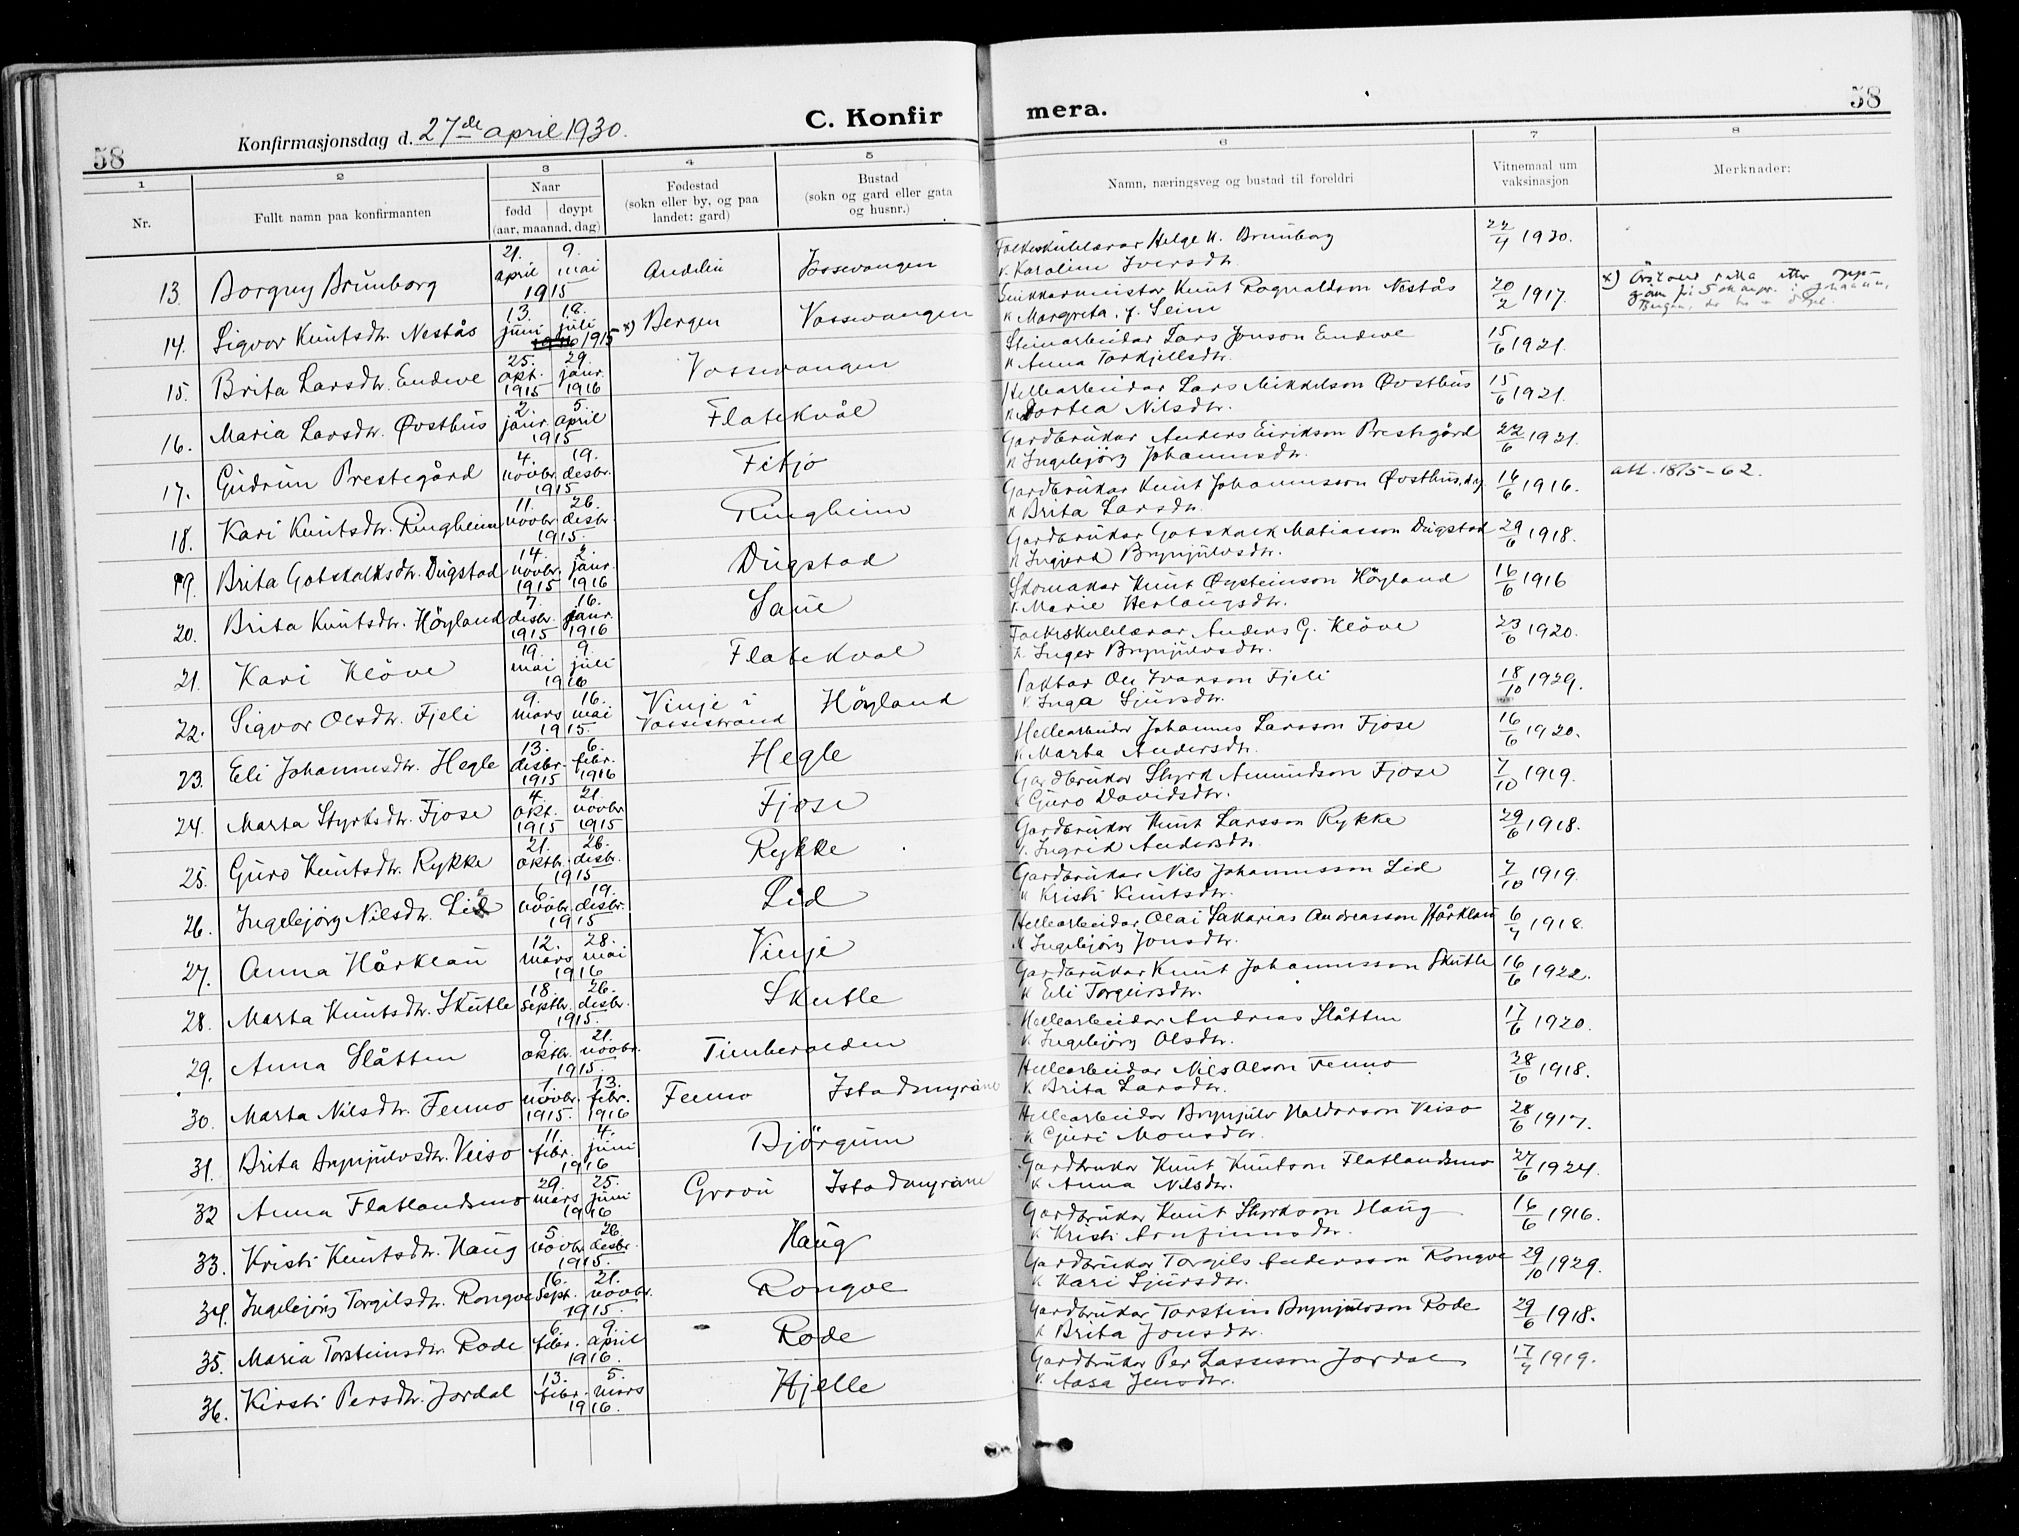 58
Konfirmasjonsdag d. 27de april 1930.
C. Konfir
mera.
58
1
2
3
4
5
6
7
8
Nr.
Fullt namn paa konfirmanten
Naar
fødd
døypt
(aar, maanad, dag)
Fødestad
(sokn eller by, og paa
landet: gard)
Bustad
(sokn og gard eller gata
og husnr.)
Namn, næringsveg og bustad til foreldri
Vitnemaal um
vaksinasjon
Merknader:
13. Borgny Brunborg 21. april 9. mai 1915 Vossevangen Folkeskulelærar Helge K. Brunborg 22/4 1930.
k. Karoline Iversdtr.
14. Sigvor Knutsdtr. Nestås 13. juni 18. juli 1915 x) Bergen Vossevangen Knut Rognaldson Nestås 20/2 1917. x)
k Margreta J. Seim
15. Brita Larsdtr. Endeve 25. okt. 1915 29. janr. 1916 Vossevangen Steinarbeidar Lars Jonson Endeve 15/6 1921.
k Anna Torkjellsdtr.
16. Maria Larsdtr. Øvsthus 2. janr. 5 april 1915 Flatekvål Hellearbeidar Lars Mikkelson Øvsthus 15/6 1921.
k Dortea Nilsdtr.
17. Gudrun Prestegård 4. novbr. 19. desbr. 1915 Fitjo Gardbrukar Anders Eirikson Prestegård 22/6 1921.
k Ingebjörg Johannesdtr.
18. Kari Knutsdtr. Ringheim 11. novbr. 26. desbr. 1915. Ringheim Gardbrukar Knut Johannesson Øvsthus, 16/6 1916. att. 18/5-62.
k Brita Larsdtr.
19. Brita Gotskalksdtr. Dugstad 14. novbr. 1915 2. janr. 1916 Dugstad Gardbrukar Gotskalk Matiasson Dugstad 29/6 1918.
k Ingjerd Brynjulvsdtr.
20. Brita Knutsdtr. Höyland 7. desbr. 1915 16. janr. 1916 Saue Skomakar Knut Øysteinson Höyland 16/6 1916
k. Marie Herlaugsdtr.
21. Kari Klöve 19. mai 9. juli 1916 Flatekval Folkeskulelærar Anders G. Klöve 23/6 1920.
k. Inger Brynjulvsdtr.
22. Sigvor Olsdtr. Fjeli 9. mars 16. mai 1915. Vinje i Vossestrand Höyland Paktar Ole Ivarson Fjeli 18/10 1929.
k Inga Sjursdtr.
23. Eli Johannesdtr. Hegle 13. desbr. 1915 6. febr. 1916 Hegle Hellearbeidar Johannes Larsson Fjose 16/6 1920.
k Marta Andersdtr.
24. Marta Styrksdtr. Fjose 4. okt. 1915 21. novbr 1915 Fjose Gardbrukar Styrk Amundson Fjose 7/10 1919.
k Guro Davidsdtr.
25. Guro Knutsdtr. Rykke 21. oktbr. 26. desbr. 1915 Rykke Gardbrukar Knut Larsson Rykke 29/6 1918.
k. Ingrid Andersdtr.
26. Ingebjörg Nilsdtr. Lid 6. novbr. 19. desbr. 1915 Lid Gardbrukar Nils Johannesson Lid 7/10 1919.
k Kristi Knutsdtr.
27. Anna Hårklau 12. mars 28. mai 1916 Vinje Hellearbeidar Olai Sakarias Andreasson Hårklau 6/7 1918.
k Ingebjörg Jonsdtr.
28. Marta Knutsdtr. Skutle 18. Septbr. 26. desbr. 1915. Skutle Gardbrukar Knut Johannesson Skutle 16/6 1922.
k Eli Torgeirsdtr.
29. Anna Slåtten 9. oktbr. 21. novbr. 1915. Timberolden Hellearbeidar Andreas Slåtten 17/6 1920.
k Ingebjörg Olsdtr.
30. Marta Nilsdtr. Fenno 7. novbr. 1915. 13. febr. 1916 Fenno Istadmyrane Hellearbeidar Nils Olson Fenno 28/6 1918.
k Brita Larsdtr.
31. Brita Brynjulvsdtr. Veiso 11. febr. 4. juni 1916 Björgum Hellearbeidar Brynjulv Haldorson Veiso 28/6 1917.
k Guri Monsdtr.
32 Anna Flatlandsmo 29. mars 25. juni 1916 Istadmyrane Gardbrukar Knut Knutson Flatlandsmo 27/6 1924.
k Anna Nilsdtr.
33. Kristi Knutsdtr. Haug 5. novbr 26. desbr. 1915. Haug Gardbrukar Knut Styrkson Haug 16/6 1916.
k Kristi Arnfinnsdtr.
34. Ingebjörg Torgilsdtr. Rongve 16. Sept. 21. novbr. 1915. Rongve Gardbrukar Torgils Andersson Rongve 29/10 1929.
k Kari Sjursdtr.
35. Maria Torsteinsdtr. Rode 6 febr. 9 april 1916. Rode Gardbrukar Torstein Brynjulvson Rode 29/6 1918.
k Brita Jonsdtr.
36. Kirsti Persdtr. Jordal 13. febr. 5. mars 1916. Hjelle Gardbrukar Per Lasseson Jordal 17/7 1919.
k. Aasa Jensdtr.